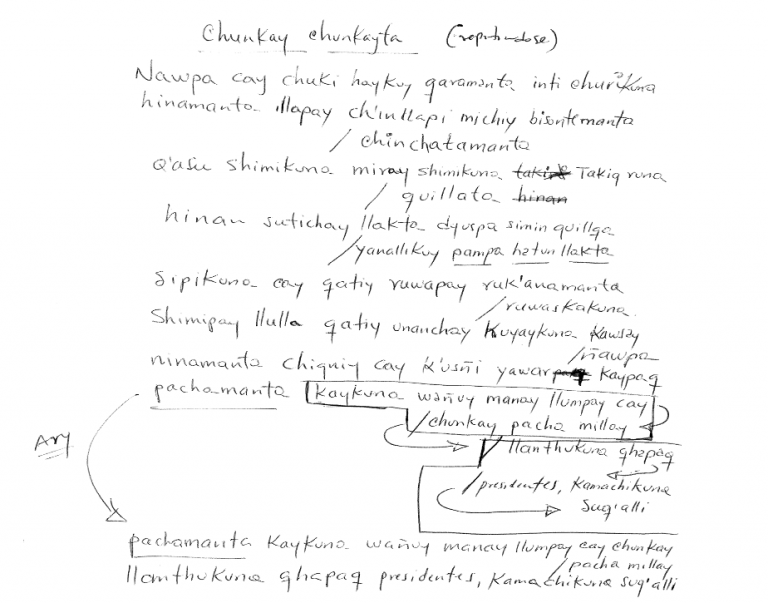 Chunkay chunkayta (repitiendose)
Nawpa cay chuki haykuy qaramanta inti churikuna
hinamanta illapay ch'inllapi michiy bisontemanta
/ chinchatamanta
Q'asu shimikuna miray shimikuna takiq Takiq runa
/ quillata hinan
hinan sutichay llakta dyuspa simin quillqa
/yanallikuy pampa hatun llakta
Sipikuna cay qatiy ruwapay ruk'anamanta
/ruwaskakuna.
Shimipay llulla qatiy unanchay Kuyaykuna Kawsay
/ñawpa
ninamanta chiqniy cay k'usñi yawar Kaypaq
pachamanta Kaykuna wañuy manay llumpay cay
/chunkay pacha millay
Ary
/llanthukuna qhapaq
/presidentes, Kamachikuna
Suq'alli
pachamanta Kaykuna wañuy manay llumpay cay chunkay
/pacha millay
llanthukuna qhapaq presidentes, Kamachikuna Suq'alli